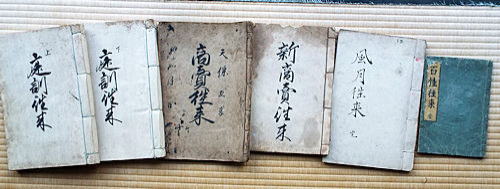 上
庭訓往来
下
庭訓往来
天保五年
商賣往来
新商賣往来
風月往来
完
百姓往来